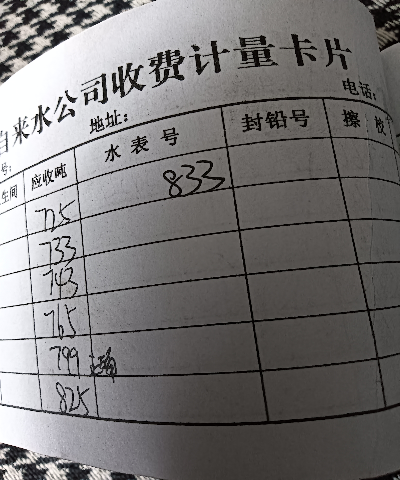 自来水公司收费计量卡片
地址： 电话：
号：
生间 应收吨 水表号 封铅号 擦校
725 833
733
743
765
799
825